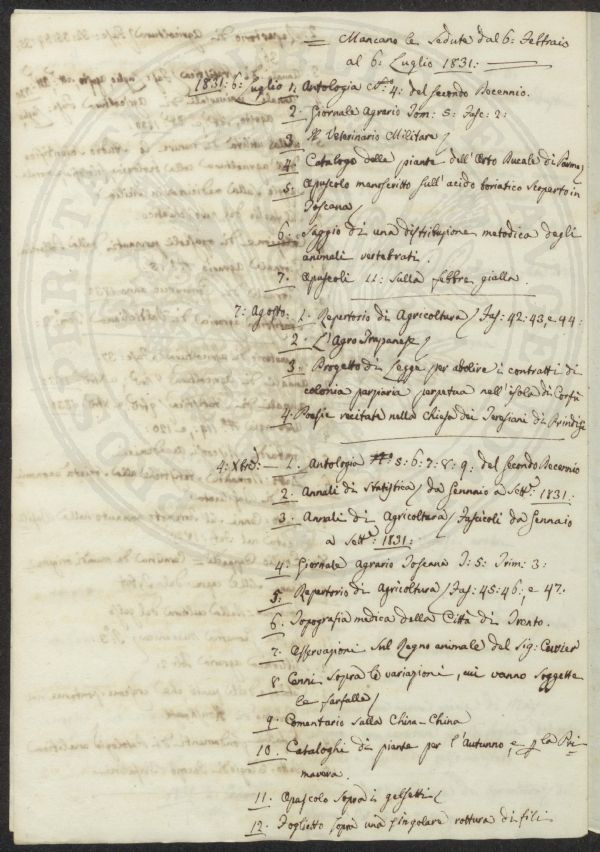 = Mancano le Sedute dal 6: Febraio
al 6: Luglio 1831: —
1831: 6: Luglio 1. Antologia 4: del secondo Decennio.
2. Giornale Agrario Tom: 5: Fasc: 2:
3. Il Veterinario Militare /
4. Catalogo delle piante dell'Orto Ducale di Parma
5: Opuscolo manoscritto sull'acido boriatico scoperto in
Toscana /
6: Saggio di una distribuzione metodica degli
animali vertebrati.
7. Opuscoli 11: sulla febbre gialla.
7: Agosto: 1. Repertorio di Agricoltura / Fas: 42: 43, e 44:
2. L'Agro Trapanese /
3. Progetto di Legge per abolire i contratti di
colonia parziaria perpetua nell'isola di Corfù
4: Poesie recitate nella chiesa dei Teresiani di Brindisi
4: Xbre: — 1. Antologia N: 5: 6: 7: 8: 9: del secondo Decennio
2. Annali di Statistica / da Gennaio a Sette: 1831:
3. Annali di Agricoltura / Fascicoli da Gennaio
a Sette: 1831:
4: Giornale Agrario Toscana T: 5: Trim: 3:
5: Repertorio di Agricoltura / Fas: 45: 46: e 47.
6. Topografia medica della Città di Trento.
7. Osservazioni sul Regno animale del Sig: Cuvier
8. Cenni sopra le variazioni, cui vanno soggette
le farfalle /
9. Comentario sulla China-China
10. Cataloghi di piante per l'Autunno, e p la Pri=
mavera.
11. Opuscolo sopra i gelsetti /
12. Foglietto sopra una singolare rottura di fili